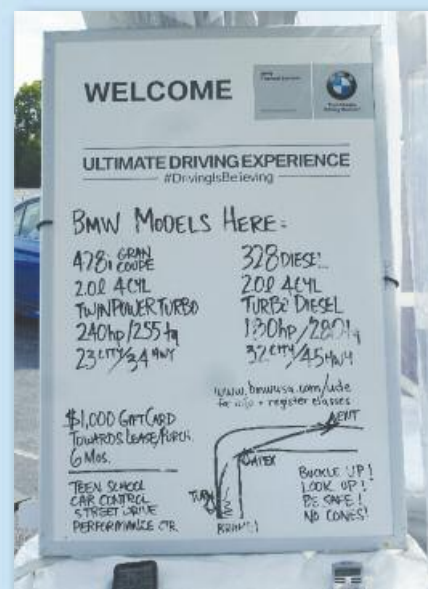 WELCOME
BMW
Financial Services
The Ultimate
Driving Machine®
ULTIMATE DRIVING EXPERIENCE
#DrivingIsBelieving
BMW MODELS HERE:
428i GRAN COUPE
2.0l 4CYL
TWINPOWER TURBO
240hp/255 tq
23 CITY/34 HWY
328 DIESEL
2.0l 4CYL
TURBO DIESEL
180hp/280tq
32 CITY/45 HWY
www.bmwusa.com/ude
for info + register classes
$1,000 GIFT CARD
TOWARDS LEASE/PURCH.
6 MOS.
TEEN SCHOOL
CAR CONTROL
STREET DRIVE
PERFORMANCE CTR
APEX
TURN
BRAKE!
BUCKLE UP!
LOOK UP!
BE SAFE!
NO CONES!